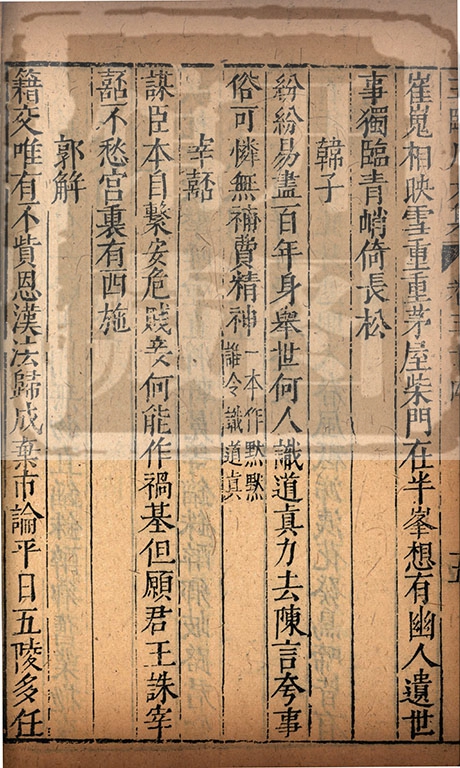 崔嵬相映雪重重茅屋柴門在半峯想有幽人遺世
事獨臨青峭倚長松
韓子
紛紛易盡百年身舉世何人識道眞力去陳言夸事
俗可憐無補費精神一本作黙黙
誰令識道眞
宰嚭
謀臣本自繫安危賤妾何能作禍基但願君王誅宰
嚭不愁宮裏有西施
郭解
籍交唯有不貲恩漢法歸成棄市論平日五陵多任